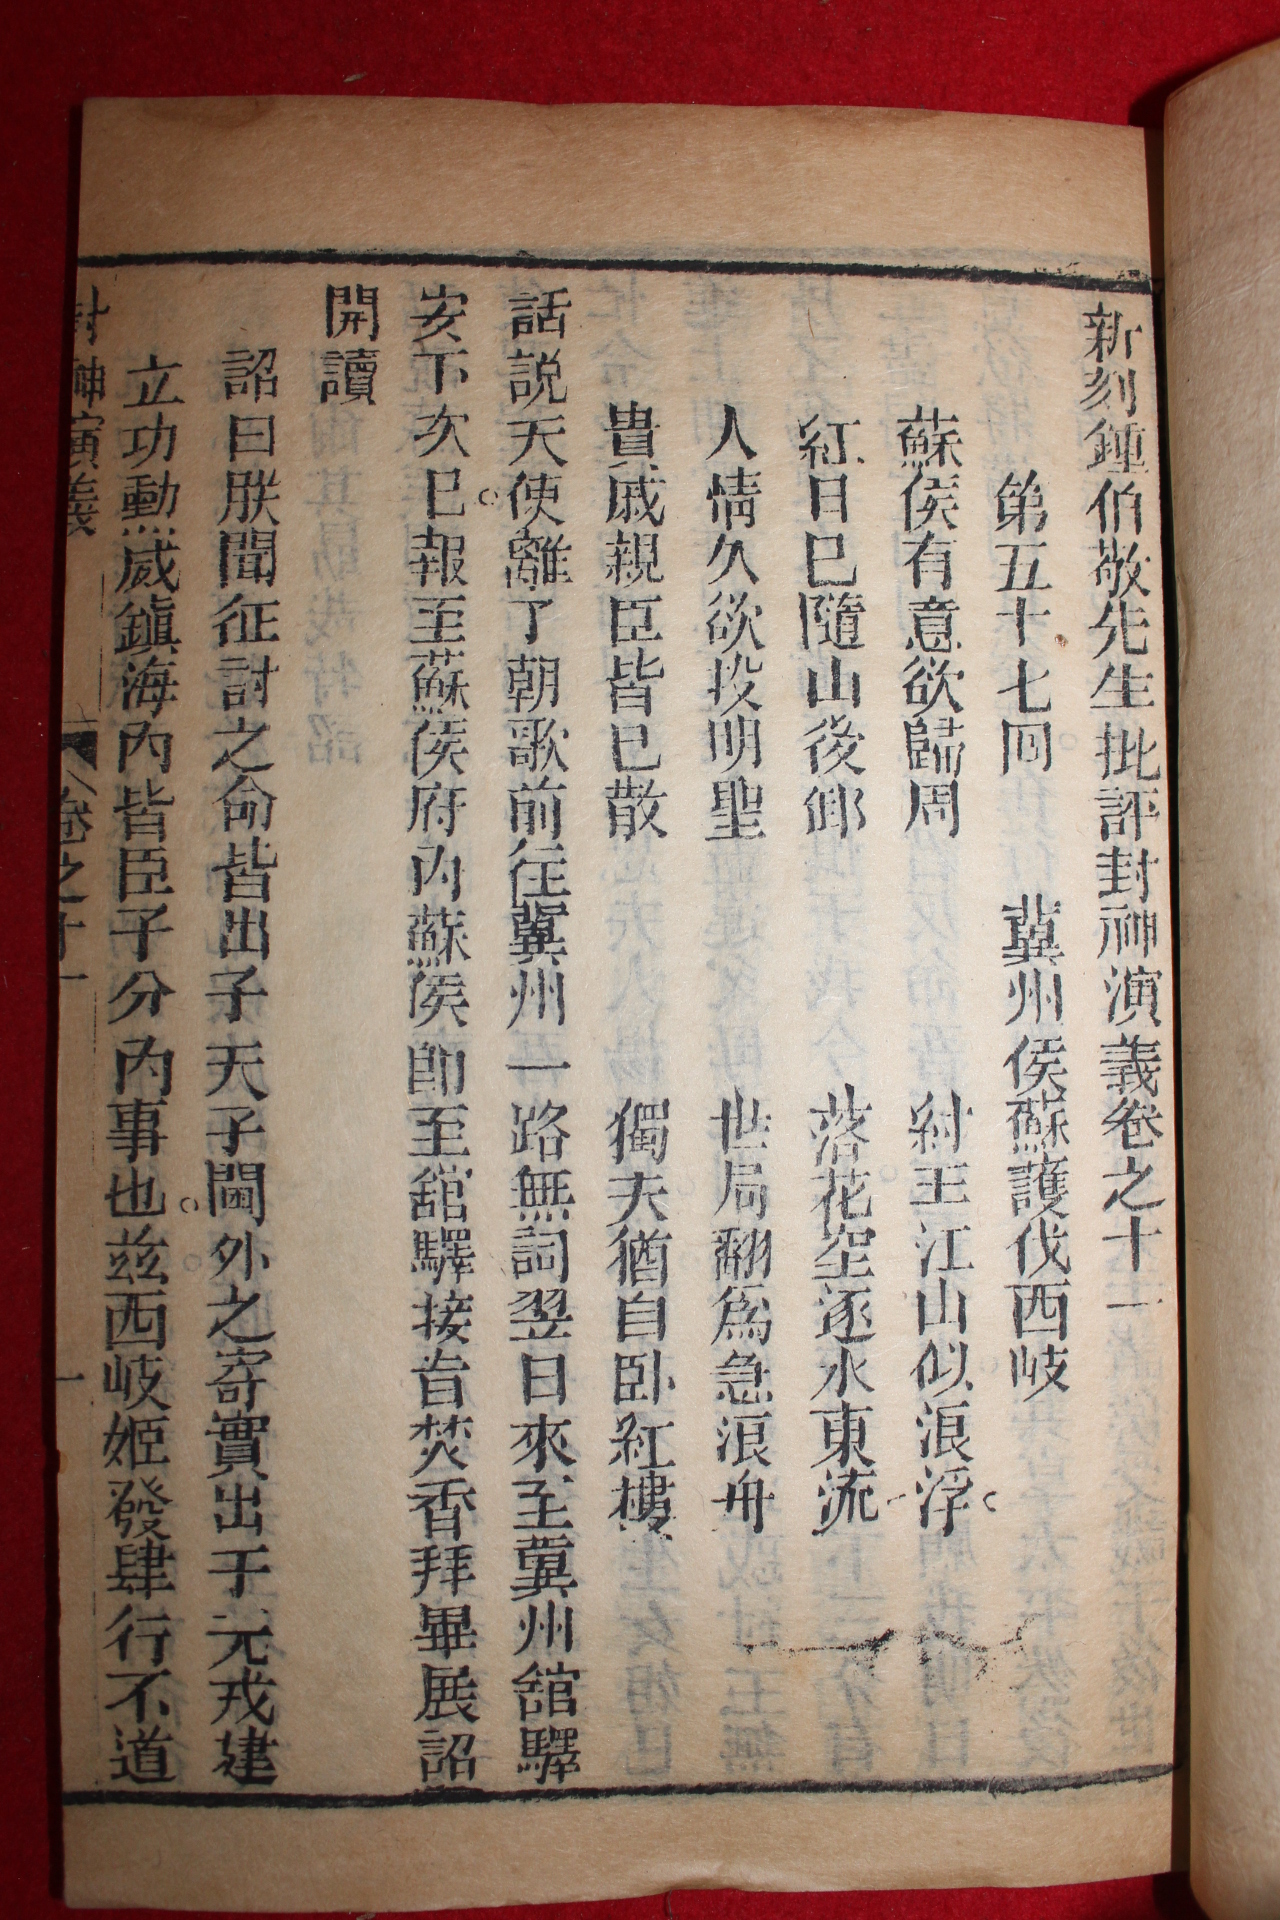 新刻鍾伯敬先生批評封神演義卷之十一
第五十七囘　冀州侯蘇護伐西岐
蘇侯有意欲歸周　紂王江山似浪浮
紅日已隨山後卸　落花空逐水東流
人情久欲投明聖　世局翻爲急浪舟
貴戚親臣皆已散　獨夫猶自卧紅樓
話説天使離了朝歌前往冀州一路無詞翌日來至冀州舘驛
安下次日報至蘇侯府内蘇侯即至舘驛接旨焚香拜畢展詔
開讀
詔曰朕聞征討之命皆出子天子閫外之寄實出于元戎建
立功勳威鎮海内皆臣子分内事也兹西岐姬發肆行不道
封神演義　卷之十一　一